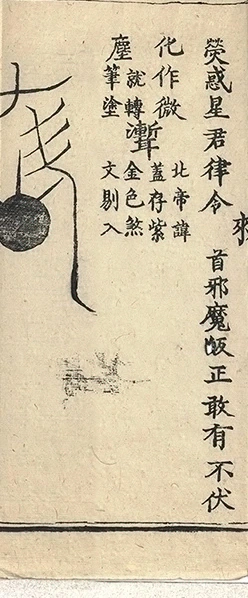 熒惑星君律令 首邪魔皈正敢有不伏
化作微
塵
北帝諱
蓋存紫
就轉 金色煞
筆塗 文剔入